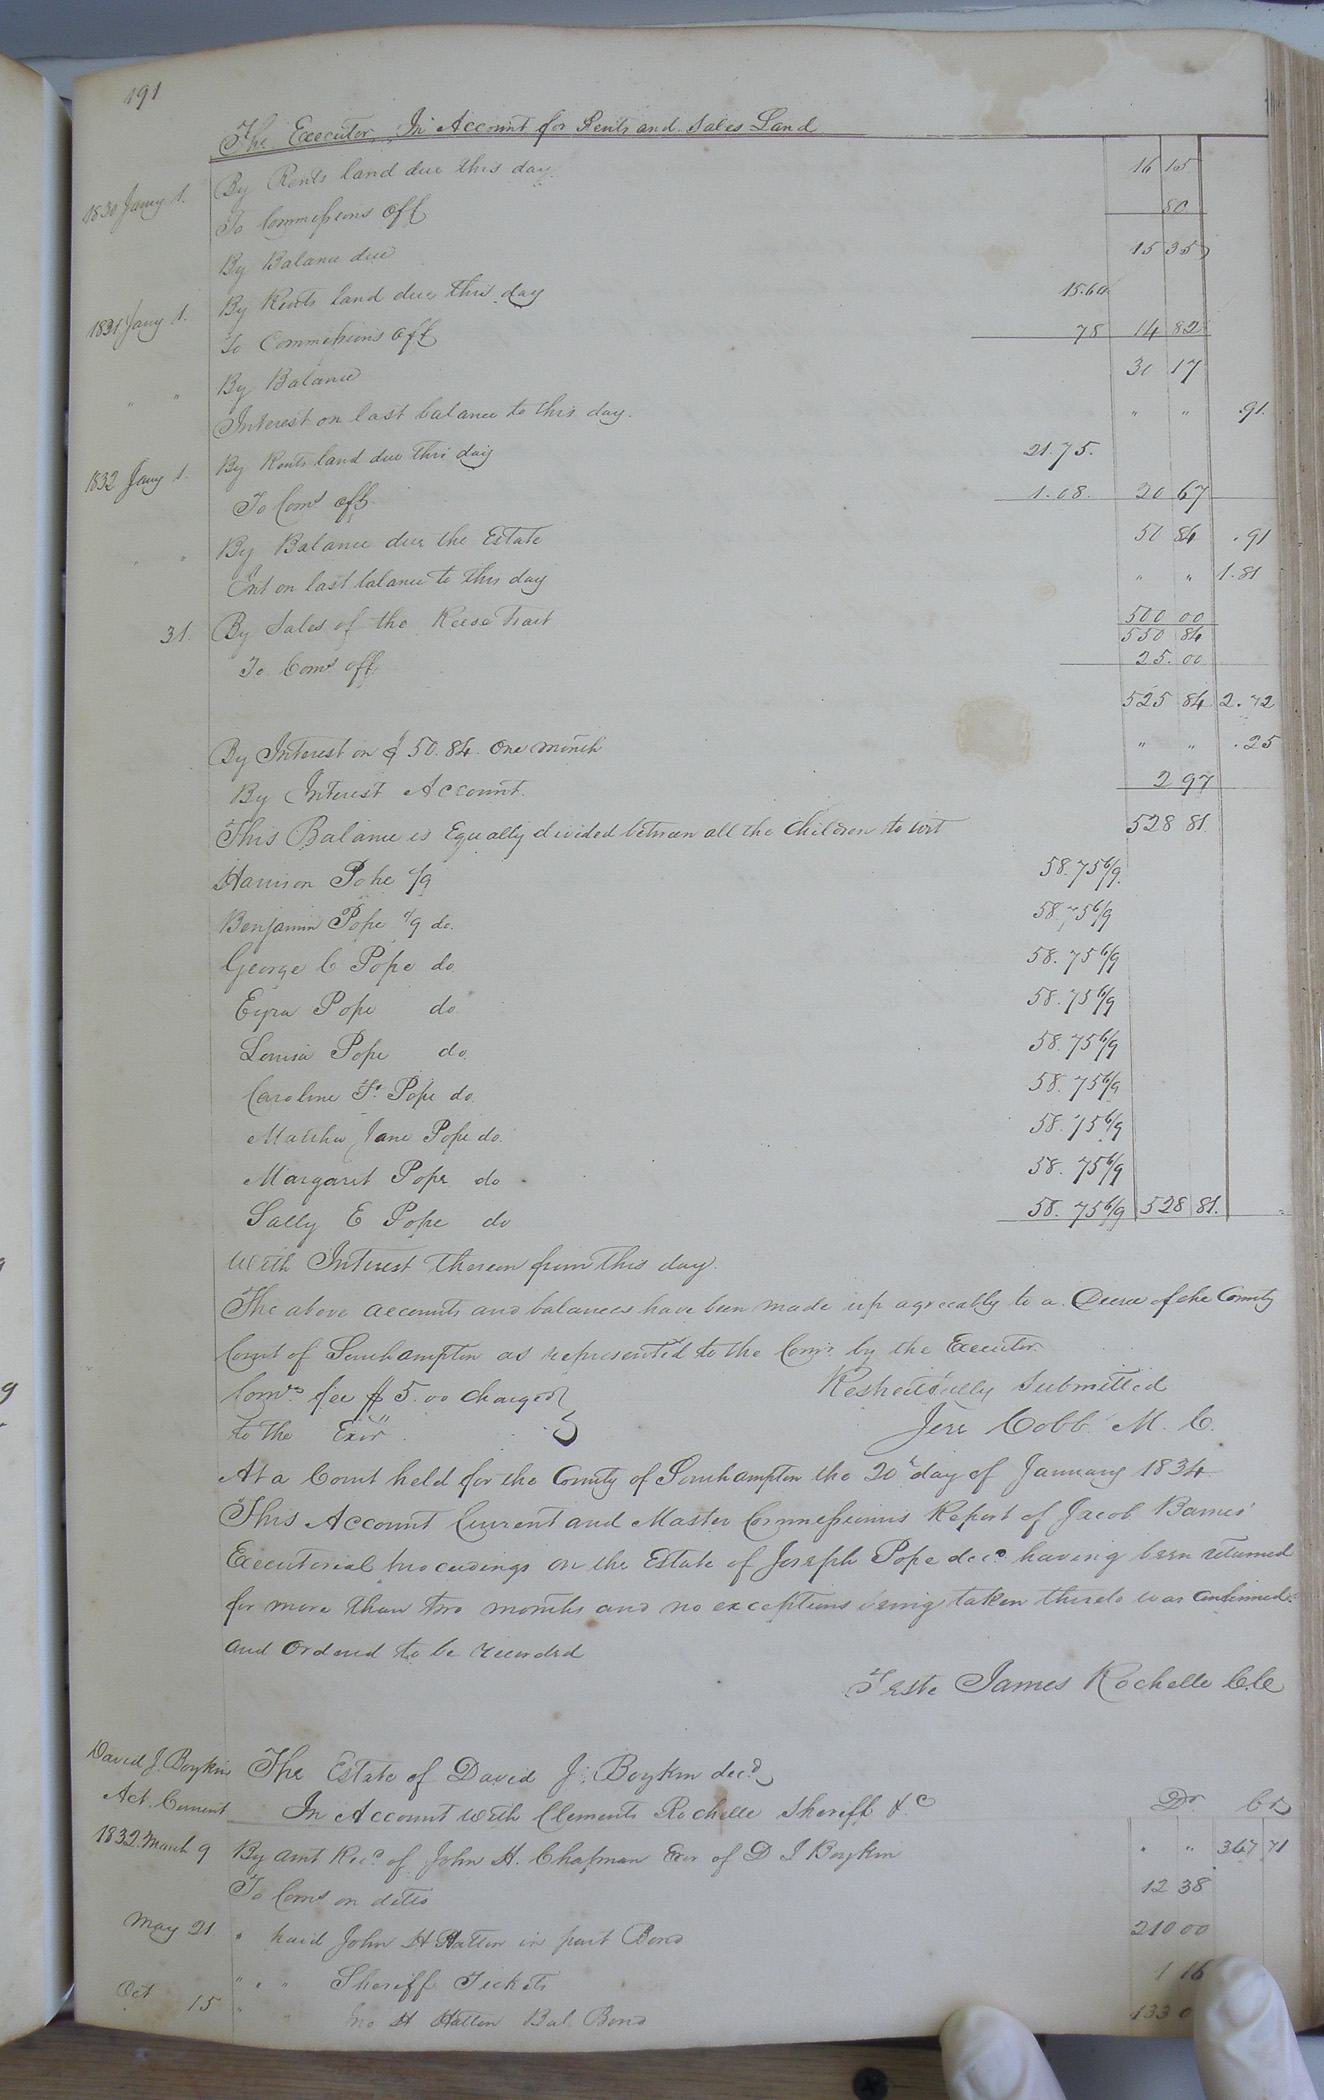 491
The Executor, In Account for Rents and Sales Land
1830 Jany 1. By Rents land due this day 16 15
To Commissions off 80
By Balance due 15 35
1831 Jany 1. By Rents land due this day 15.60
To Commissions off 78 14 82
" " By Balance 30 17
Interest on last balance to this day. " " .91.
1832 Jany 1. By Rents land due this day 21.75.
To Coms off. 1.08. 20 67
" " By Balance due the Estate 50 84 .91
Int on last balance to this day " " 1.81
31. By Sales of the Reese Tract 500 00
550 84
To Coms off 25.00
525 84 2.72
By Interest on $ 50.84. One month " " .25
By Interest Account. 2 97
This Balance is Equally divided between all the children to wit 528 81
Harrison Pope 1/9 58.75 6/9.
Benjamin Pope 1/9 do. 58.75 6/9
George C Pope do 58.75 6/9
Ezra Pope do 58.75 6/9
Louisa Pope do. 58.75 6/9
Caroline F. Pope do 58.75 6/9
Martha Jane Pope do. 58.75 6/9
Margaret Pope do 58.75 6/9
Sally E Pope do 58.75 6/9 528 81.
With Interest thereon from this day.
The above accounts and balances have been made up agreeably to a Decree of the County
Court of Southampton as represented to the Comr. by the Executor.
Comrs. fee $ 5.00 charged } Respectfully Submitted
to the Exor. Jere Cobb M. C.
At a Court held for the County of Southampton the 20th day of January 1834
This Account Current and Master Commissioners Report of Jacob Barnes'
Executorial proceedings on the Estate of Joseph Pope decd. having been returned
for more than two months and no exceptions being taken thereto was confirmed
and Ordered to be recorded
Teste James Rochelle C.C
David J. Boykins The Estate of David J. Boykin decd.
Act. Current In Account with Clements Rochelle Sheriff &c Dr Cr
1832 March 9 By amt Recd. of John H. Chapman Exor of D J Boykin " " 367 71
To Coms on ditto 12 38
May 21 " paid John H Hatton in part Bond 210 00
" " " Sheriff Tickets 1 16
Oct 15 " " Jno H Hatton Bal. Bond 133 0